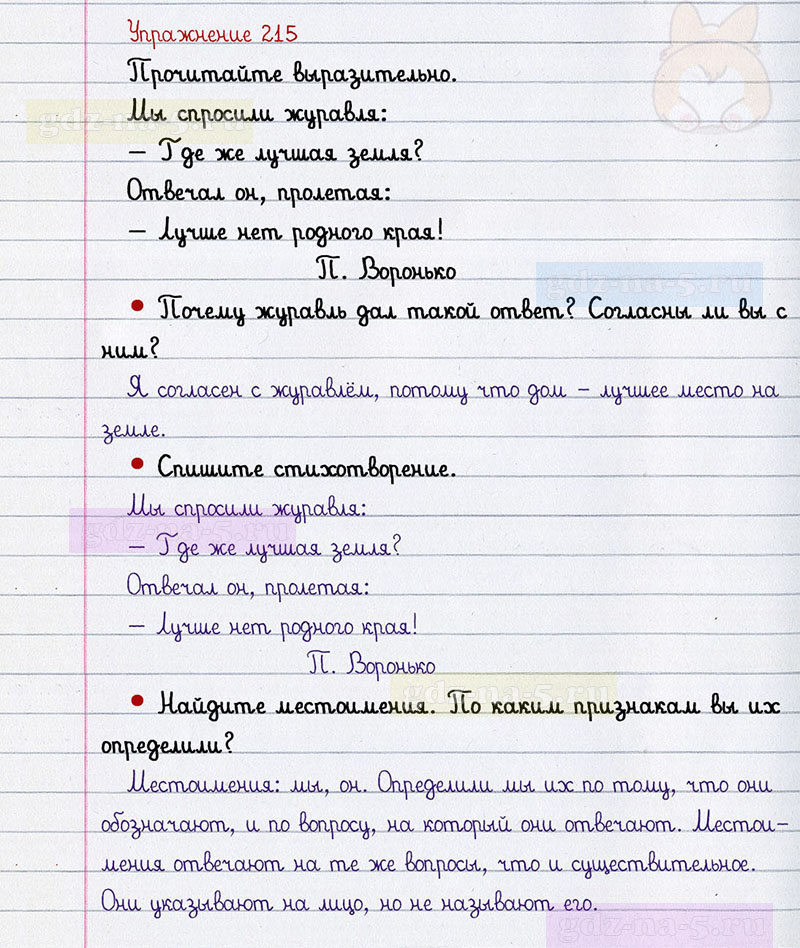 Упражнение 215
Прочитайте выразительно.
Мы спросили журавля:
gdz-na-5.ru
– Где же лучшая земля?
Отвечал он, пролетая:
– Лучше нет родного края!
П. Воронько
gdz-na-5.ru
• Почему журавль дал такой ответ? Согласны ли вы с
ним?
Я согласен с журавлём, потому что дом – лучшее место на
земле.
• Спишите стихотворение.
Мы спросили журавля:
gdz-na-5.ru
– Где же лучшая земля?
Отвечал он, пролетая:
– Лучше нет родного края!
П. Воронько
gdz-na-5.ru
• Найдите местоимения. По каким признакам вы их
определили?
Местоимения: мы, он. Определили мы их по тому, что они
обозначают, и по вопросу, на который они отвечают. Местои-
мения отвечают на те же вопросы, что и существительное.
Они указывают на лицо, но не называют его.
gdz-na-5.ru